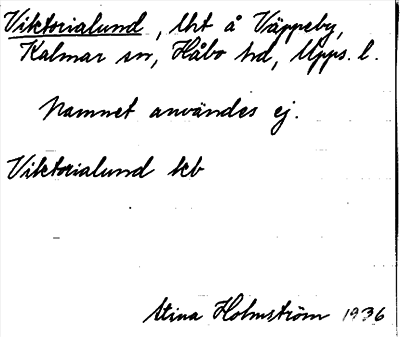 Viktorialund, lht å Väppeby,
Kalmar sn, Håbo hd, Upps. l.
Namnet användes ej.
Viktorialund kb
Stina Holmström 1936